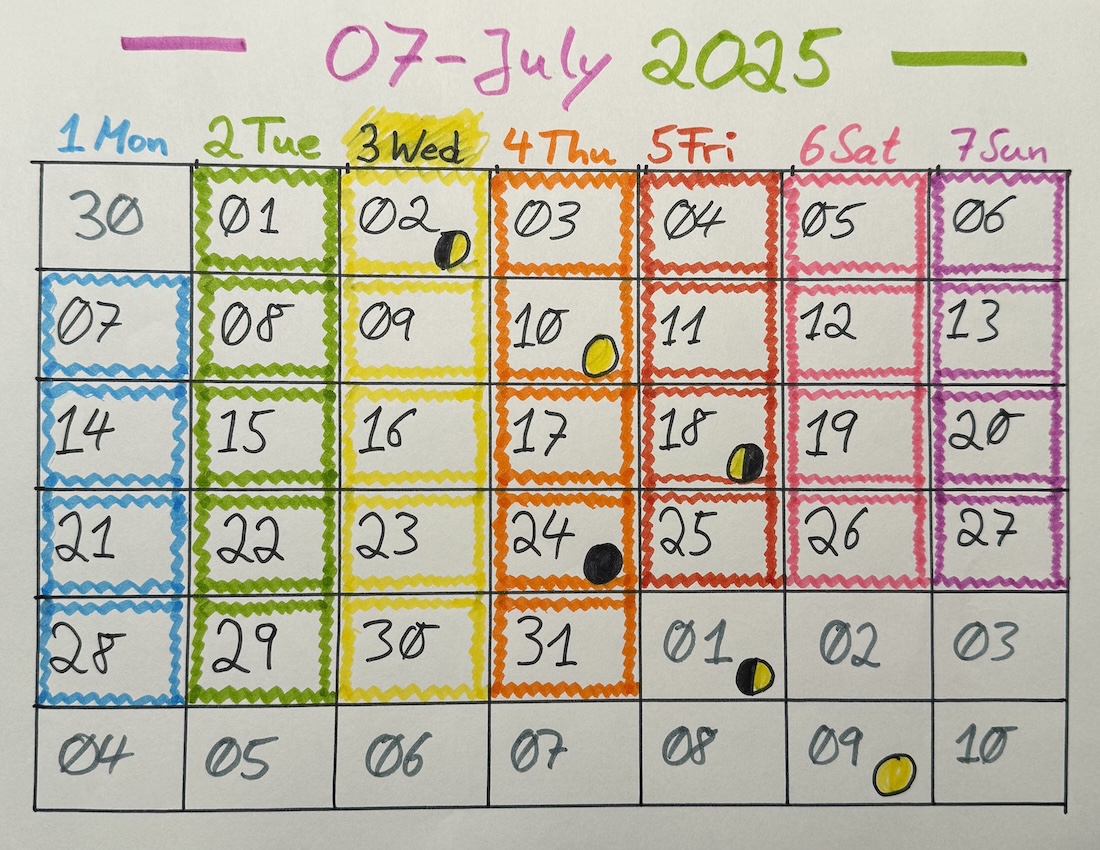 07-July 2025
1 Mon 2 Tue 3 Wed 4 Thu 5 Fri 6 Sat 7 Sun
30 01 02 03 04 05 06
07 08 09 10 11 12 13
14 15 16 17 18 19 20
21 22 23 24 25 26 27
28 29 30 31 01 02 03
04 05 06 07 08 09 10